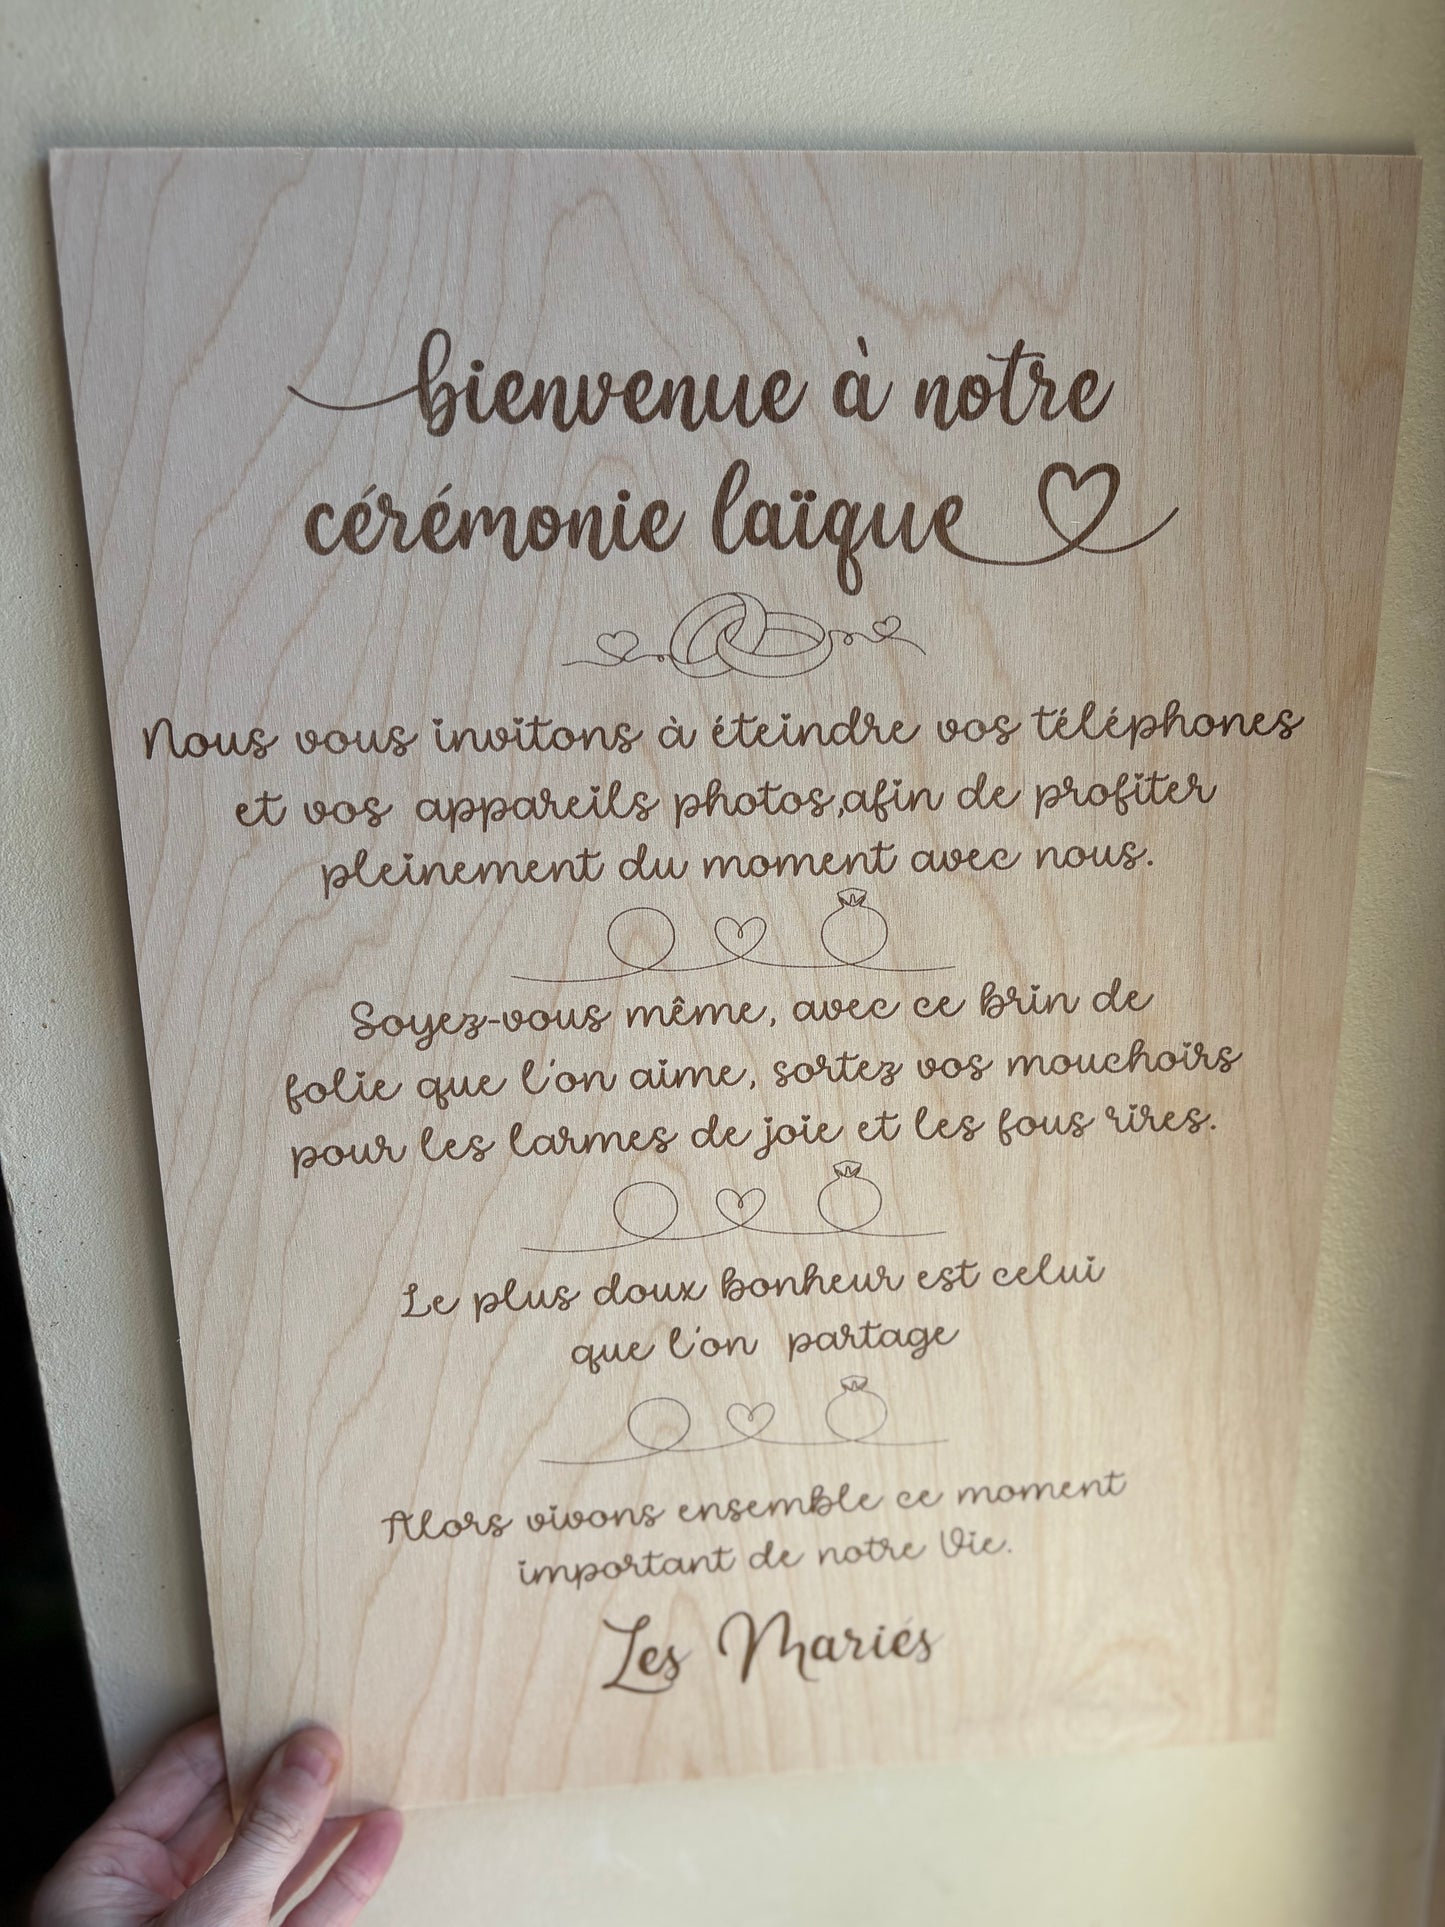 bienvenue à notre
cérémonie laïque
Nous vous invitons à éteindre vos téléphones
et vos appareils photos,afin de profiter
pleinement du moment avec nous.
Soyez-vous même, avec ce brin de
folie que l'on aime, sortez vos mouchoirs
pour les larmes de joie et les fous rires.
Le plus doux bonheur est celui
que l'on partage
Alors vivons ensemble ce moment
important de notre Vie.
Les Mariés